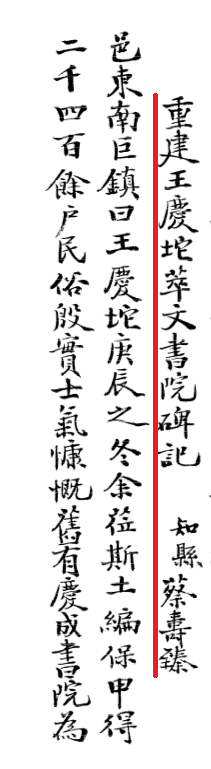 重建王慶坨萃文書院碑記 知縣蔡壽臻
邑東南巨鎮曰王慶坨庚辰之冬余蒞斯土編保甲得
二千四百餘戶民俗殷實士氣慷慨舊有慶成書院為